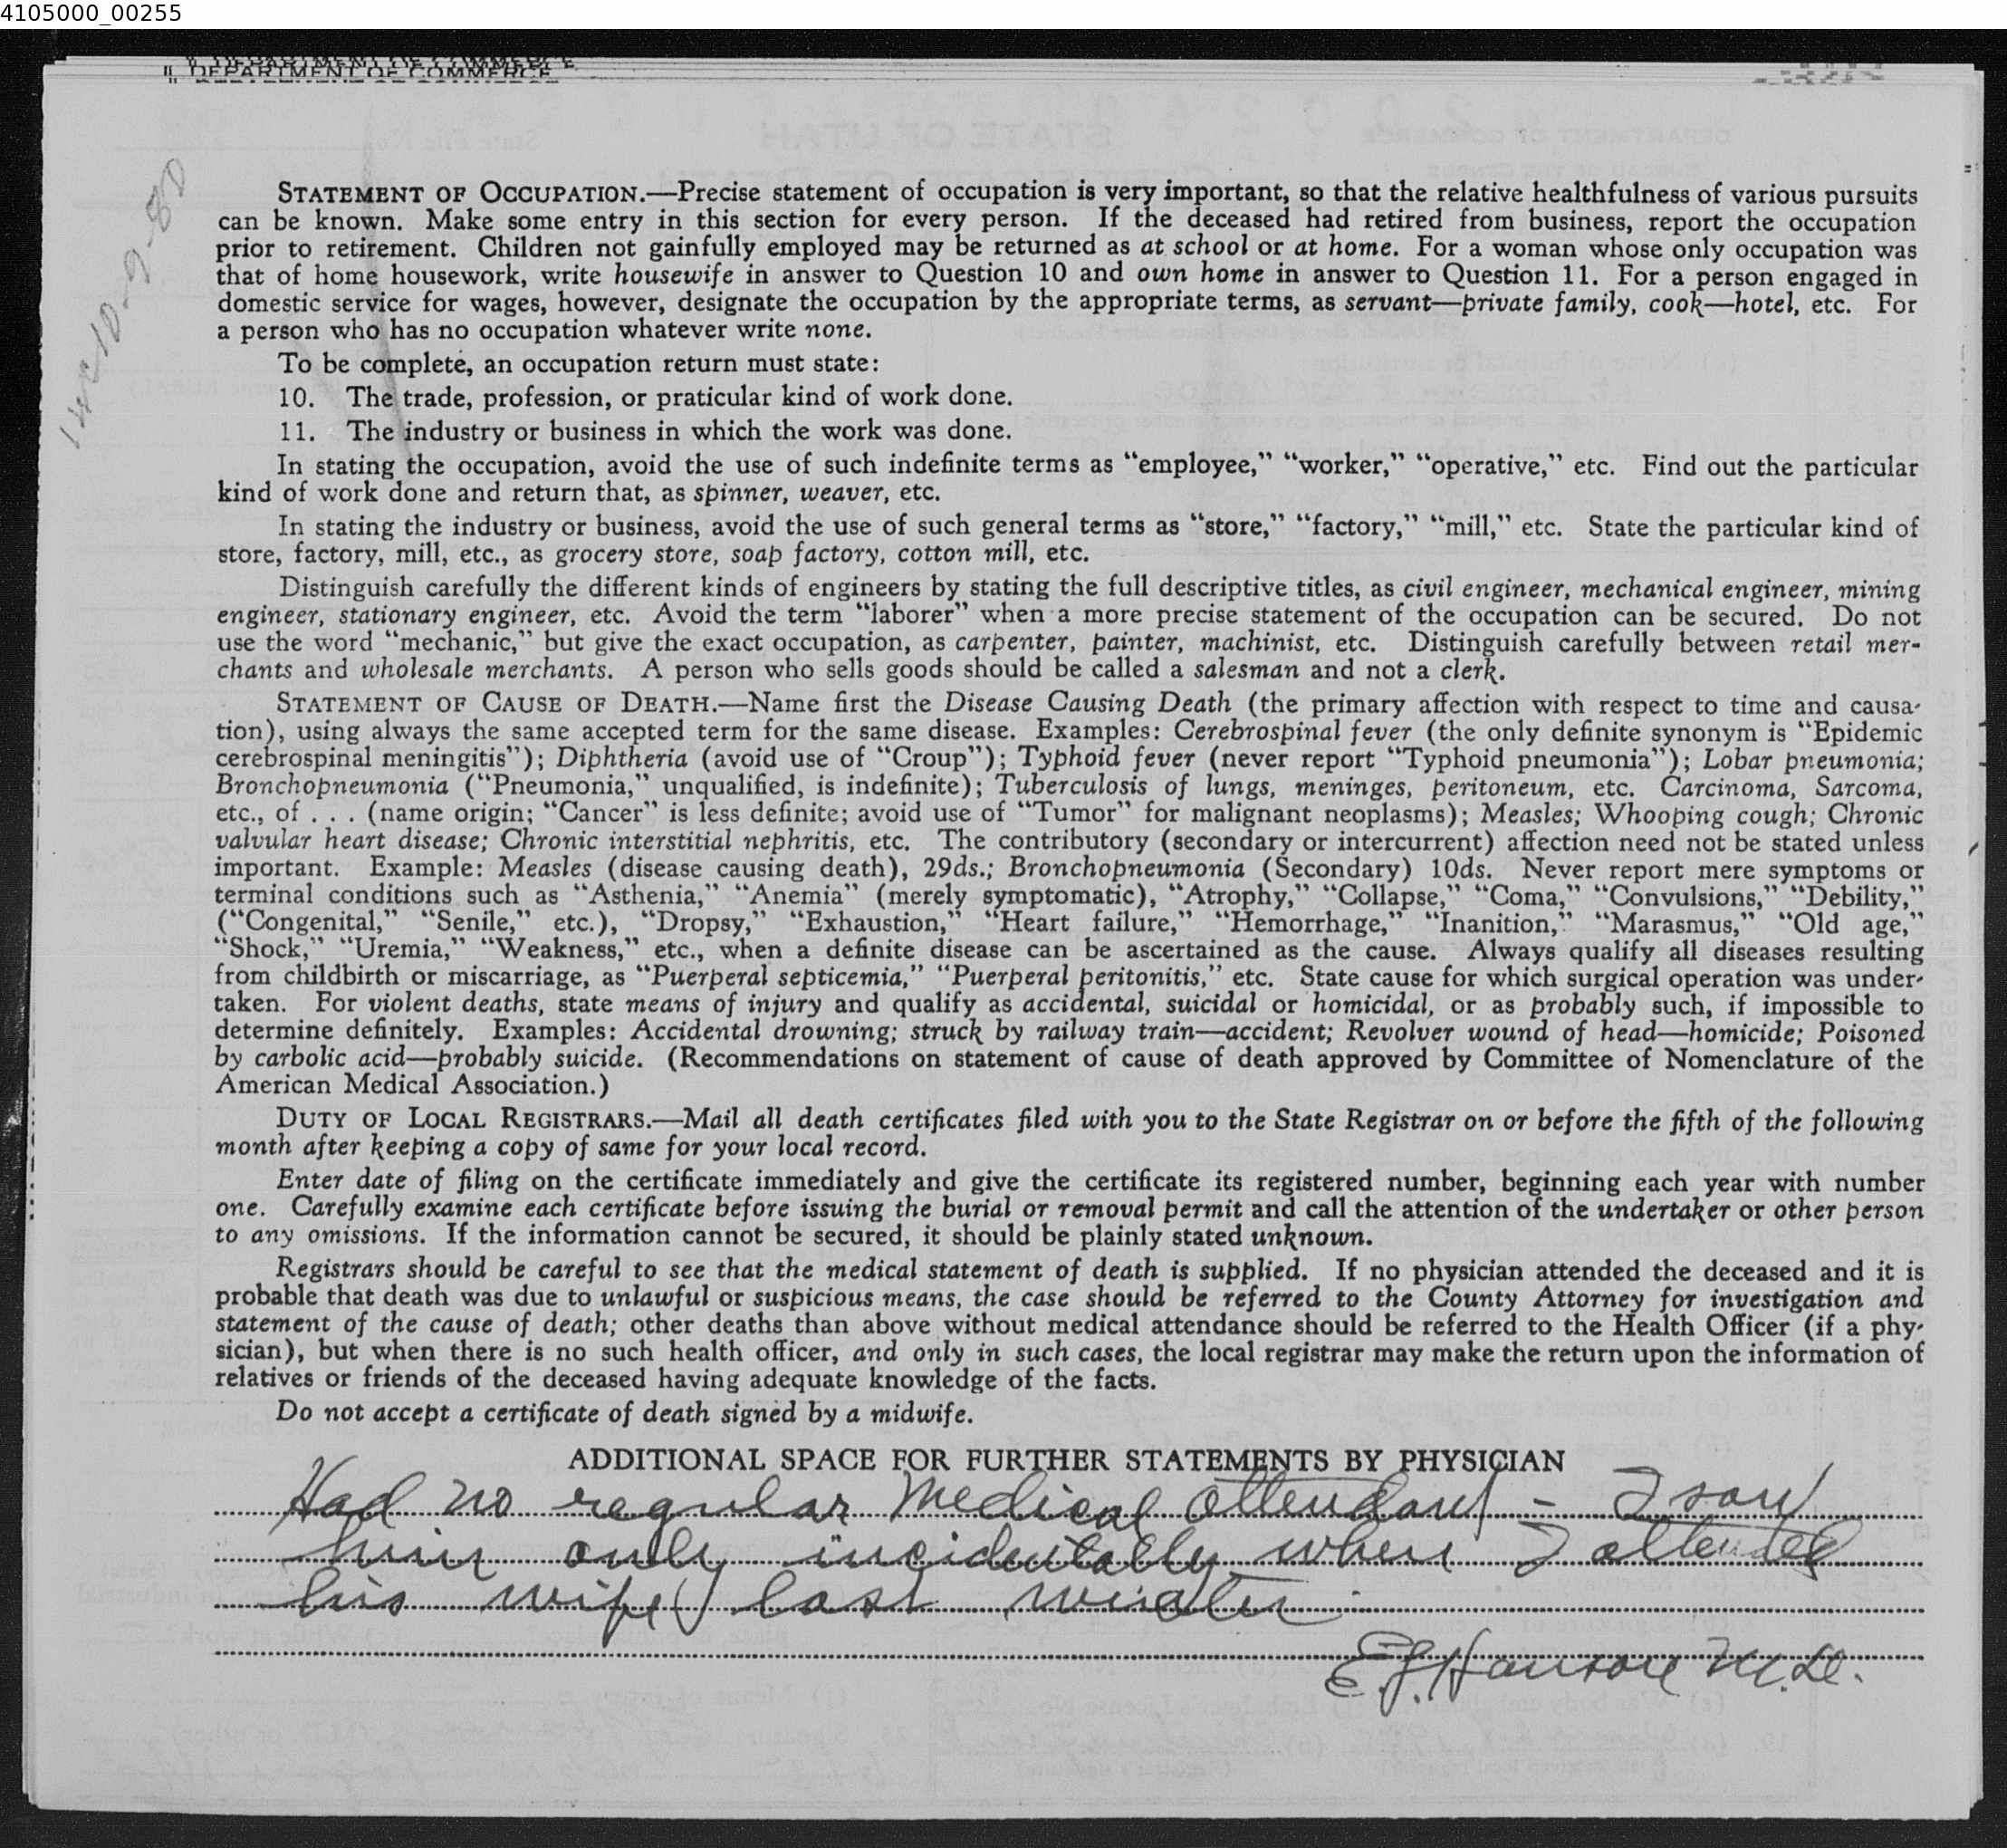 4105000_00255
DEPARTMENT OF COMMERCE
DEPARTMENT OF COMMERCE
STATEMENT OF OCCUPATION.—Precise statement of occupation is very important, so that the relative healthfulness of various pursuits
can be known. Make some entry in this section for every person. If the deceased had retired from business, report the occupation
prior to retirement. Children not gainfully employed may be returned as at school or at home. For a woman whose only occupation was
that of home housework, write housewife in answer to Question 10 and own home in answer to Question 11. For a person engaged in
domestic service for wages, however, designate the occupation by the appropriate terms, as servant—private family, cook—hotel, etc. For
a person who has no occupation whatever write none.
To be complete, an occupation return must state:
10. The trade, profession, or praticular kind of work done.
11. The industry or business in which the work was done.
In stating the occupation, avoid the use of such indefinite terms as “employee,” “worker,” “operative,” etc. Find out the particular
kind of work done and return that, as spinner, weaver, etc.
In stating the industry or business, avoid the use of such general terms as “store,” “factory,” “mill,” etc. State the particular kind of
store, factory, mill, etc., as grocery store, soap factory, cotton mill, etc.
Distinguish carefully the different kinds of engineers by stating the full descriptive titles, as civil engineer, mechanical engineer, mining
engineer, stationary engineer, etc. Avoid the term “laborer” when a more precise statement of the occupation can be secured. Do not
use the word “mechanic,” but give the exact occupation, as carpenter, painter, machinist, etc. Distinguish carefully between retail mer-
chants and wholesale merchants. A person who sells goods should be called a salesman and not a clerk.
STATEMENT OF CAUSE OF DEATH.—Name first the Disease Causing Death (the primary affection with respect to time and causa-
tion), using always the same accepted term for the same disease. Examples: Cerebrospinal fever (the only definite synonym is “Epidemic
cerebrospinal meningitis”); Diphtheria (avoid use of “Croup”); Typhoid fever (never report “Typhoid pneumonia”); Lobar pneumonia;
Bronchopneumonia (“Pneumonia,” unqualified, is indefinite); Tuberculosis of lungs, meninges, peritoneum, etc. Carcinoma, Sarcoma,
etc., of . . . (name origin; “Cancer” is less definite; avoid use of “Tumor” for malignant neoplasms); Measles; Whooping cough; Chronic
valvular heart disease; Chronic interstitial nephritis, etc. The contributory (secondary or intercurrent) affection need not be stated unless
important. Example: Measles (disease causing death), 29ds.; Bronchopneumonia (Secondary) 10ds. Never report mere symptoms or
terminal conditions such as “Asthenia,” “Anemia” (merely symptomatic), “Atrophy,” “Collapse,” “Coma,” “Convulsions,” “Debility,”
(“Congenital,” “Senile,” etc.), “Dropsy,” “Exhaustion,” “Heart failure,” “Hemorrhage,” “Inanition,” “Marasmus,” “Old age,”
“Shock,” “Uremia,” “Weakness,” etc., when a definite disease can be ascertained as the cause. Always qualify all diseases resulting
from childbirth or miscarriage, as “Puerperal septicemia,” “Puerperal peritonitis,” etc. State cause for which surgical operation was under-
taken. For violent deaths, state means of injury and qualify as accidental, suicidal or homicidal, or as probably such, if impossible to
determine definitely. Examples: Accidental drowning; struck by railway train—accident; Revolver wound of head—homicide; Poisoned
by carbolic acid—probably suicide. (Recommendations on statement of cause of death approved by Committee of Nomenclature of the
American Medical Association.)
DUTY OF LOCAL REGISTRARS.—Mail all death certificates filed with you to the State Registrar on or before the fifth of the following
month after keeping a copy of same for your local record.
Enter date of filing on the certificate immediately and give the certificate its registered number, beginning each year with number
one. Carefully examine each certificate before issuing the burial or removal permit and call the attention of the undertaker or other person
to any omissions. If the information cannot be secured, it should be plainly stated unknown.
Registrars should be careful to see that the medical statement of death is supplied. If no physician attended the deceased and it is
probable that death was due to unlawful or suspicious means, the case should be referred to the County Attorney for investigation and
statement of the cause of death; other deaths than above without medical attendance should be referred to the Health Officer (if a phy-
sician), but when there is no such health officer, and only in such cases, the local registrar may make the return upon the information of
relatives or friends of the deceased having adequate knowledge of the facts.
Do not accept a certificate of death signed by a midwife.
ADDITIONAL SPACE FOR FURTHER STATEMENTS BY PHYSICIAN
Had no regular Medical attendant - I saw
him only incidentally when I attended
his wife last winter.
E.J. Hanson M.D.